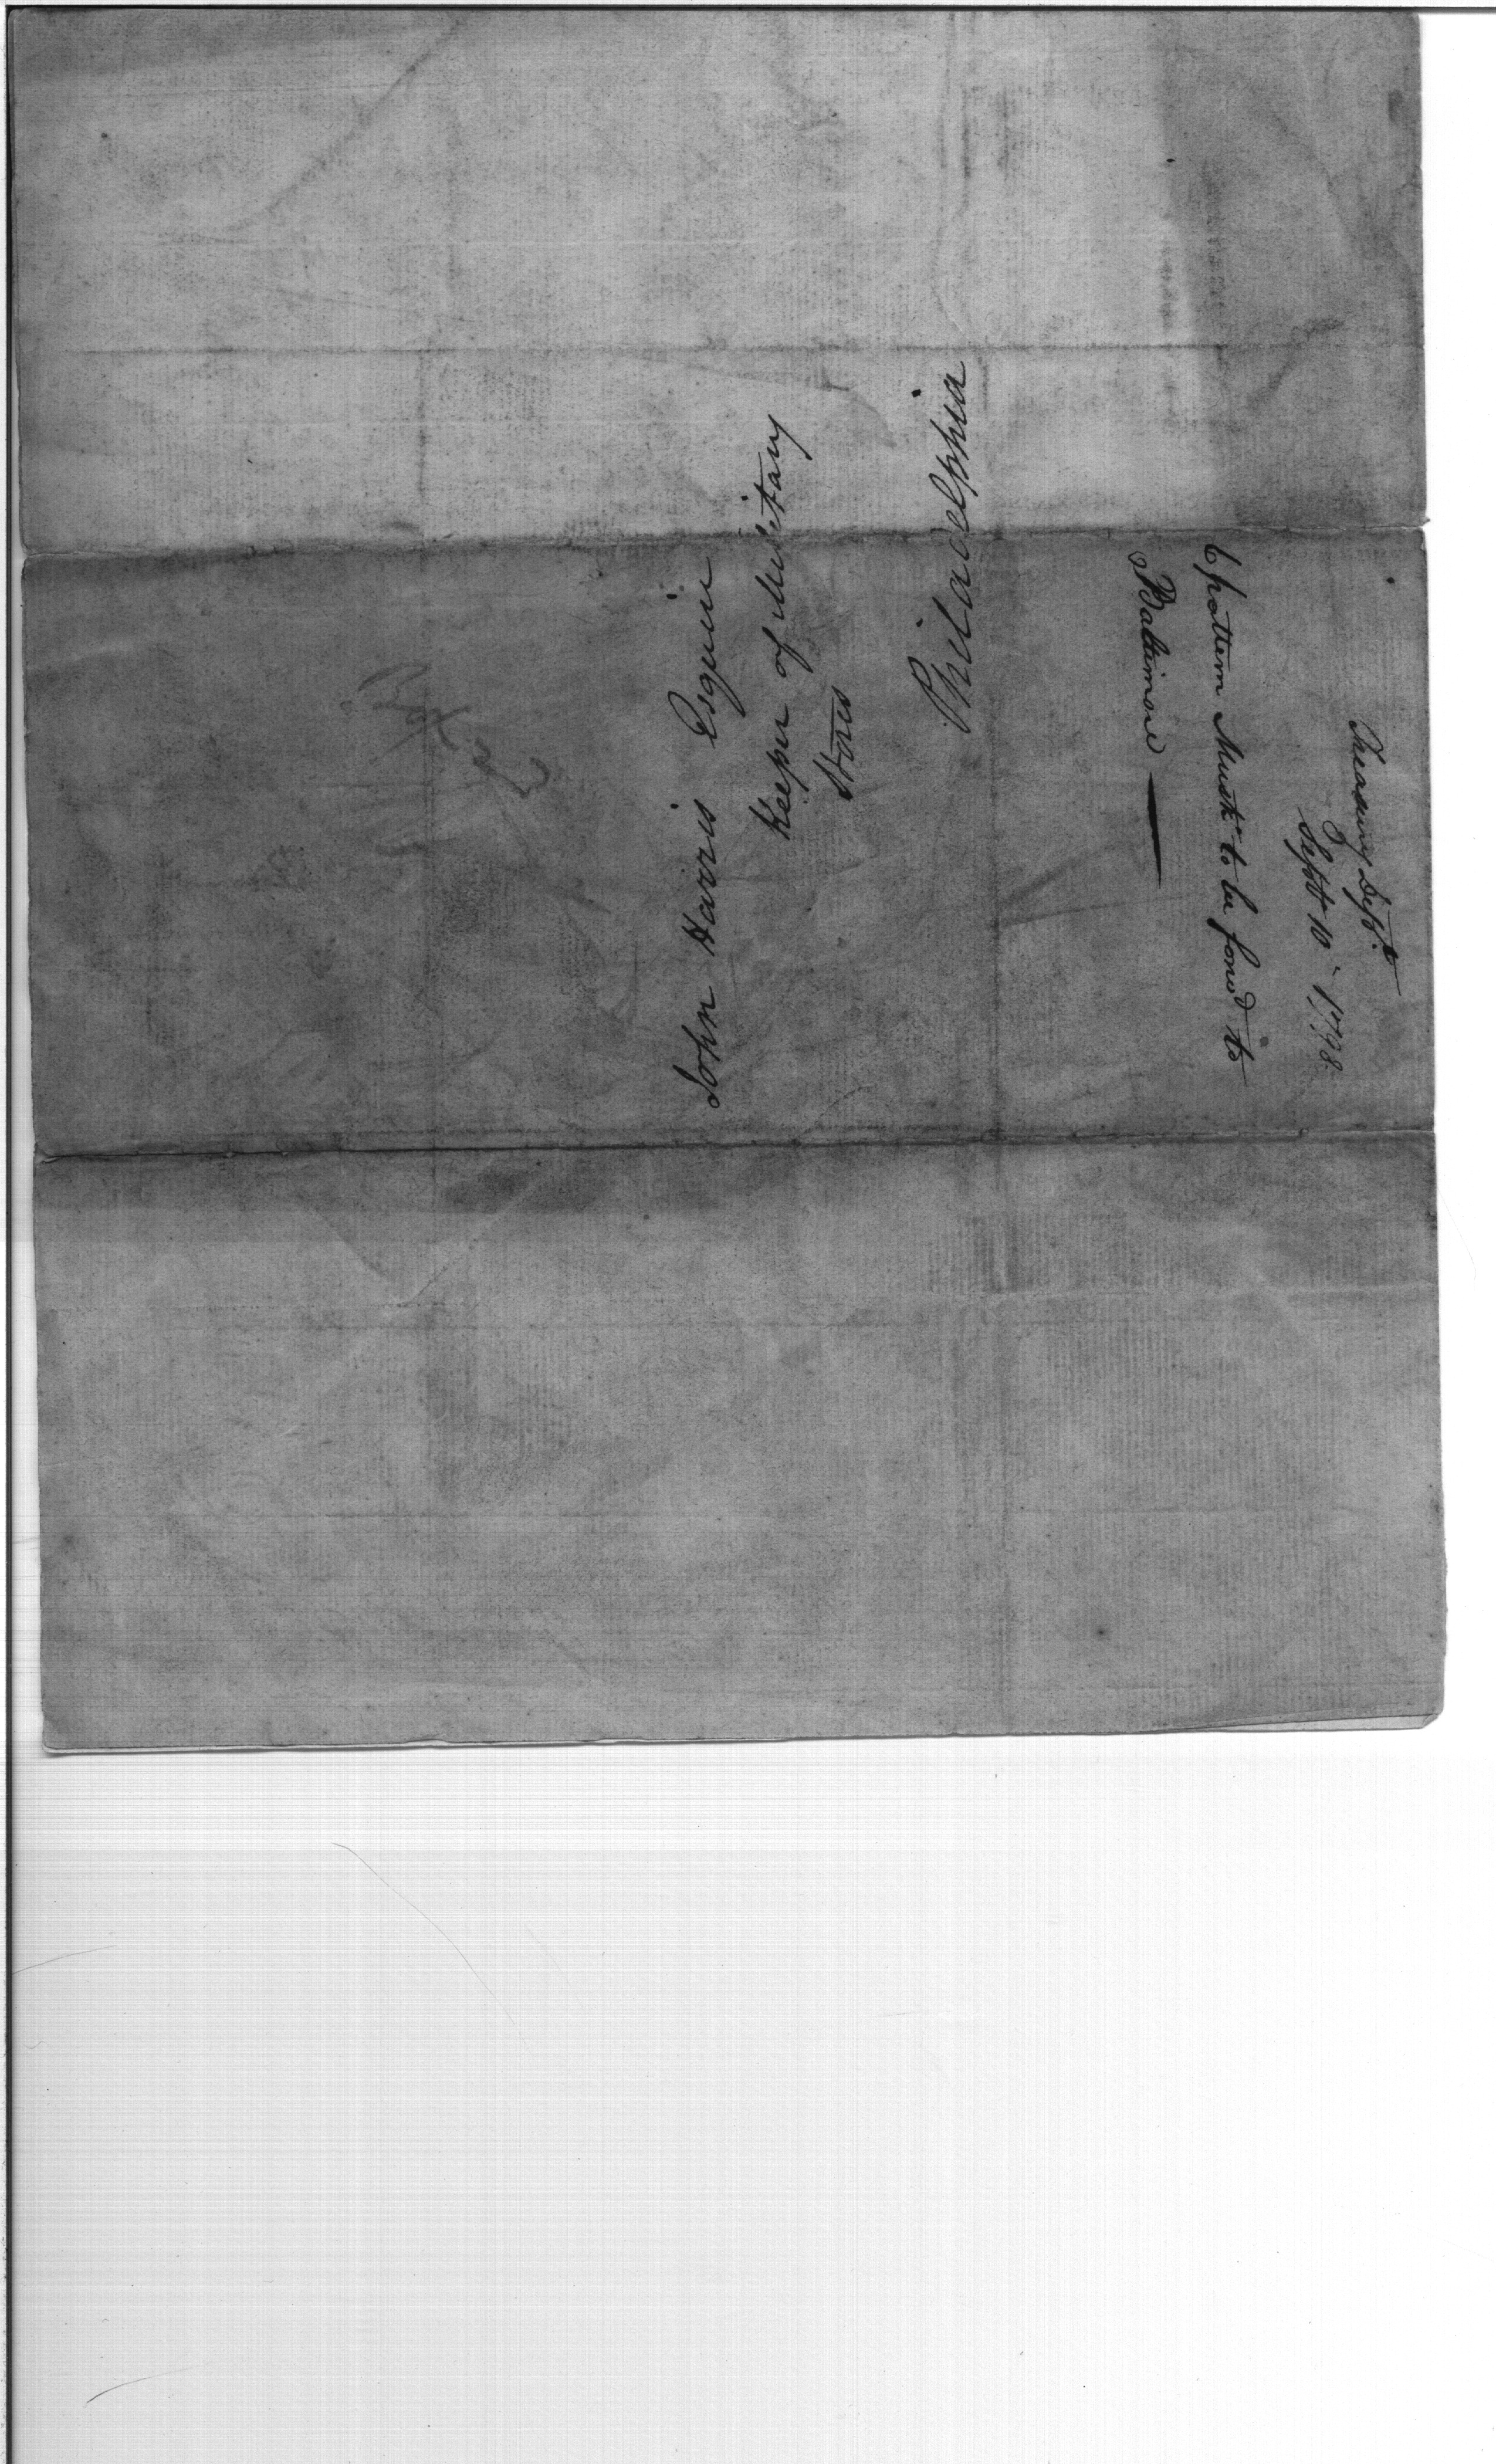 John Harris Esquire
Keeper of Military
Stores
Philadelphia
Treasury Dept.
Sept 10 1798.
6 pattern Musk.ts to be forw.d to
Baltimore —